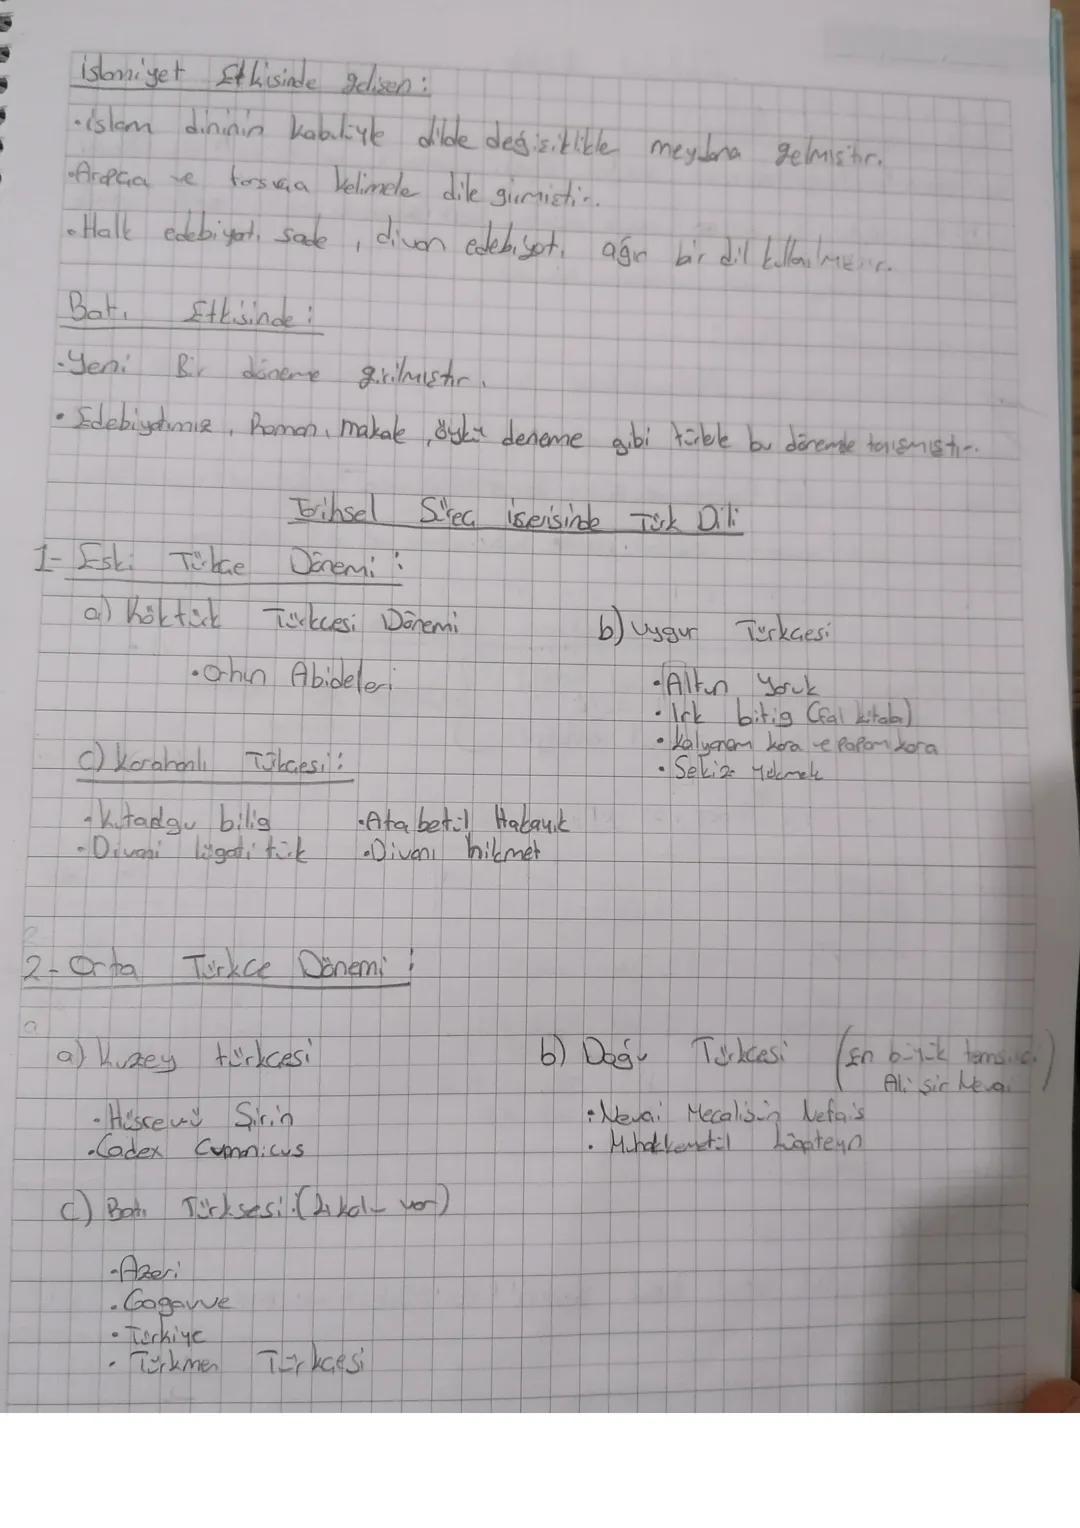 İslamiyet Etkisinde gelişen:
•İslam dininin kabulüyle dilde değişiklikle meydana gelmiştir.
•Arapça ve farsça kelimele dile girmiştir.
•Halk edebiyatı sade, divan edebiyatı ağır bir dil kullanılmıştır.
Batı Etkisinde:
•Yeni Bir döneme girilmiştir.
•Edebiyatımız, Roman, makale, öykü deneme gibi türlele bu dönemde tanışmıştır.
Tarihsel Süreç içerisinde Türk Dili
1- Eski Türkçe Dönemi:
a) Köktürk Türkçesi Dönemi
•Orhun Abideleri
b) Uygur Türkçesi
•Altun Yaruk
•Irk bitig (fal kitabı)
•Kalyanam kara ve Papam kara
•Sekiz Yükmek
c) Karahanlı Türkçesi:
•Kutadgu bilig
•Divanı lügati türk
•Atabetül Hakayık
•Divanı hikmet
2- Orta Türkçe Dönemi:
a) Kuzey türkçesi
•Hüsrev ü Şirin
•Codex Cumanicus
b) Doğu Türkçesi (En büyük temsilci Ali şir Nevai)
•Nevai Mecalisün Nefais
•Muhakkemetül Lügateyn
c) Batı Türksesi (4 kol var)
•Azeri
•Gagavuve
•Türkiye
•Türkmen Türkçesi